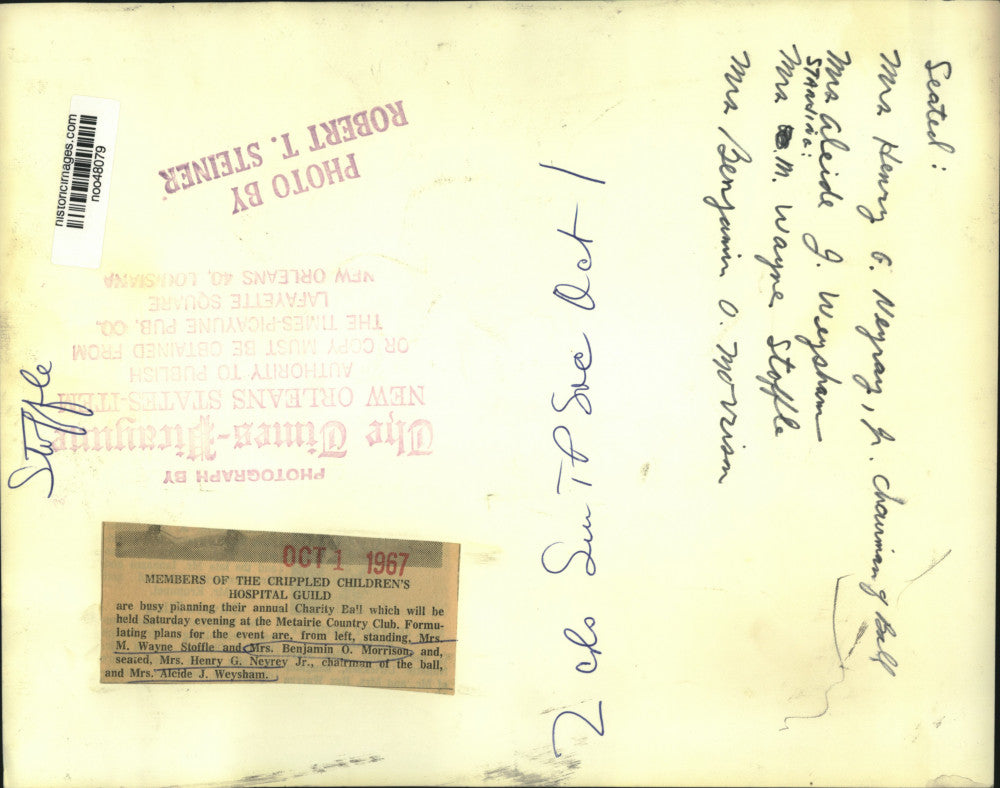 Seated:
Mrs Henry G. Neyray, Jr. Chairman of Ball
Mrs Alcide J. Weysham
STANDING:
Mrs M. Wayne Stoffle
Mrs Benjamin O. Morrison
2 cls Sun TP Soc Oct 1
historicimages.com
noo48079
PHOTO BY
ROBERT T. STEINER
Stoffle
PHOTOGRAPH BY
The Times-Picayune
NEW ORLEANS STATES-ITEM
AUTHORITY TO PUBLISH
OR COPY MUST BE OBTAINED FROM
THE TIMES-PICAYUNE PUB. CO.
LAFAYETTE SQUARE
NEW ORLEANS 40, LOUISIANA
OCT 1 1967
MEMBERS OF THE CRIPPLED CHILDREN'S
HOSPITAL GUILD
are busy planning their annual Charity Ball which will be
held Saturday evening at the Metairie Country Club. Formu-
lating plans for the event are, from left, standing, Mrs.
M. Wayne Stoffle and Mrs. Benjamin O. Morrison, and,
seated, Mrs. Henry G. Neyrey Jr., chairman of the ball,
and Mrs. Alcide J. Weysham.